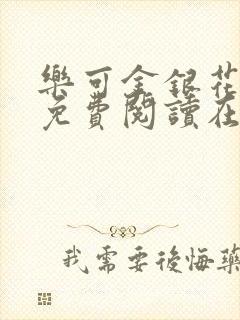 樂可金銀花
免費閱讀在
我需要後悔藥